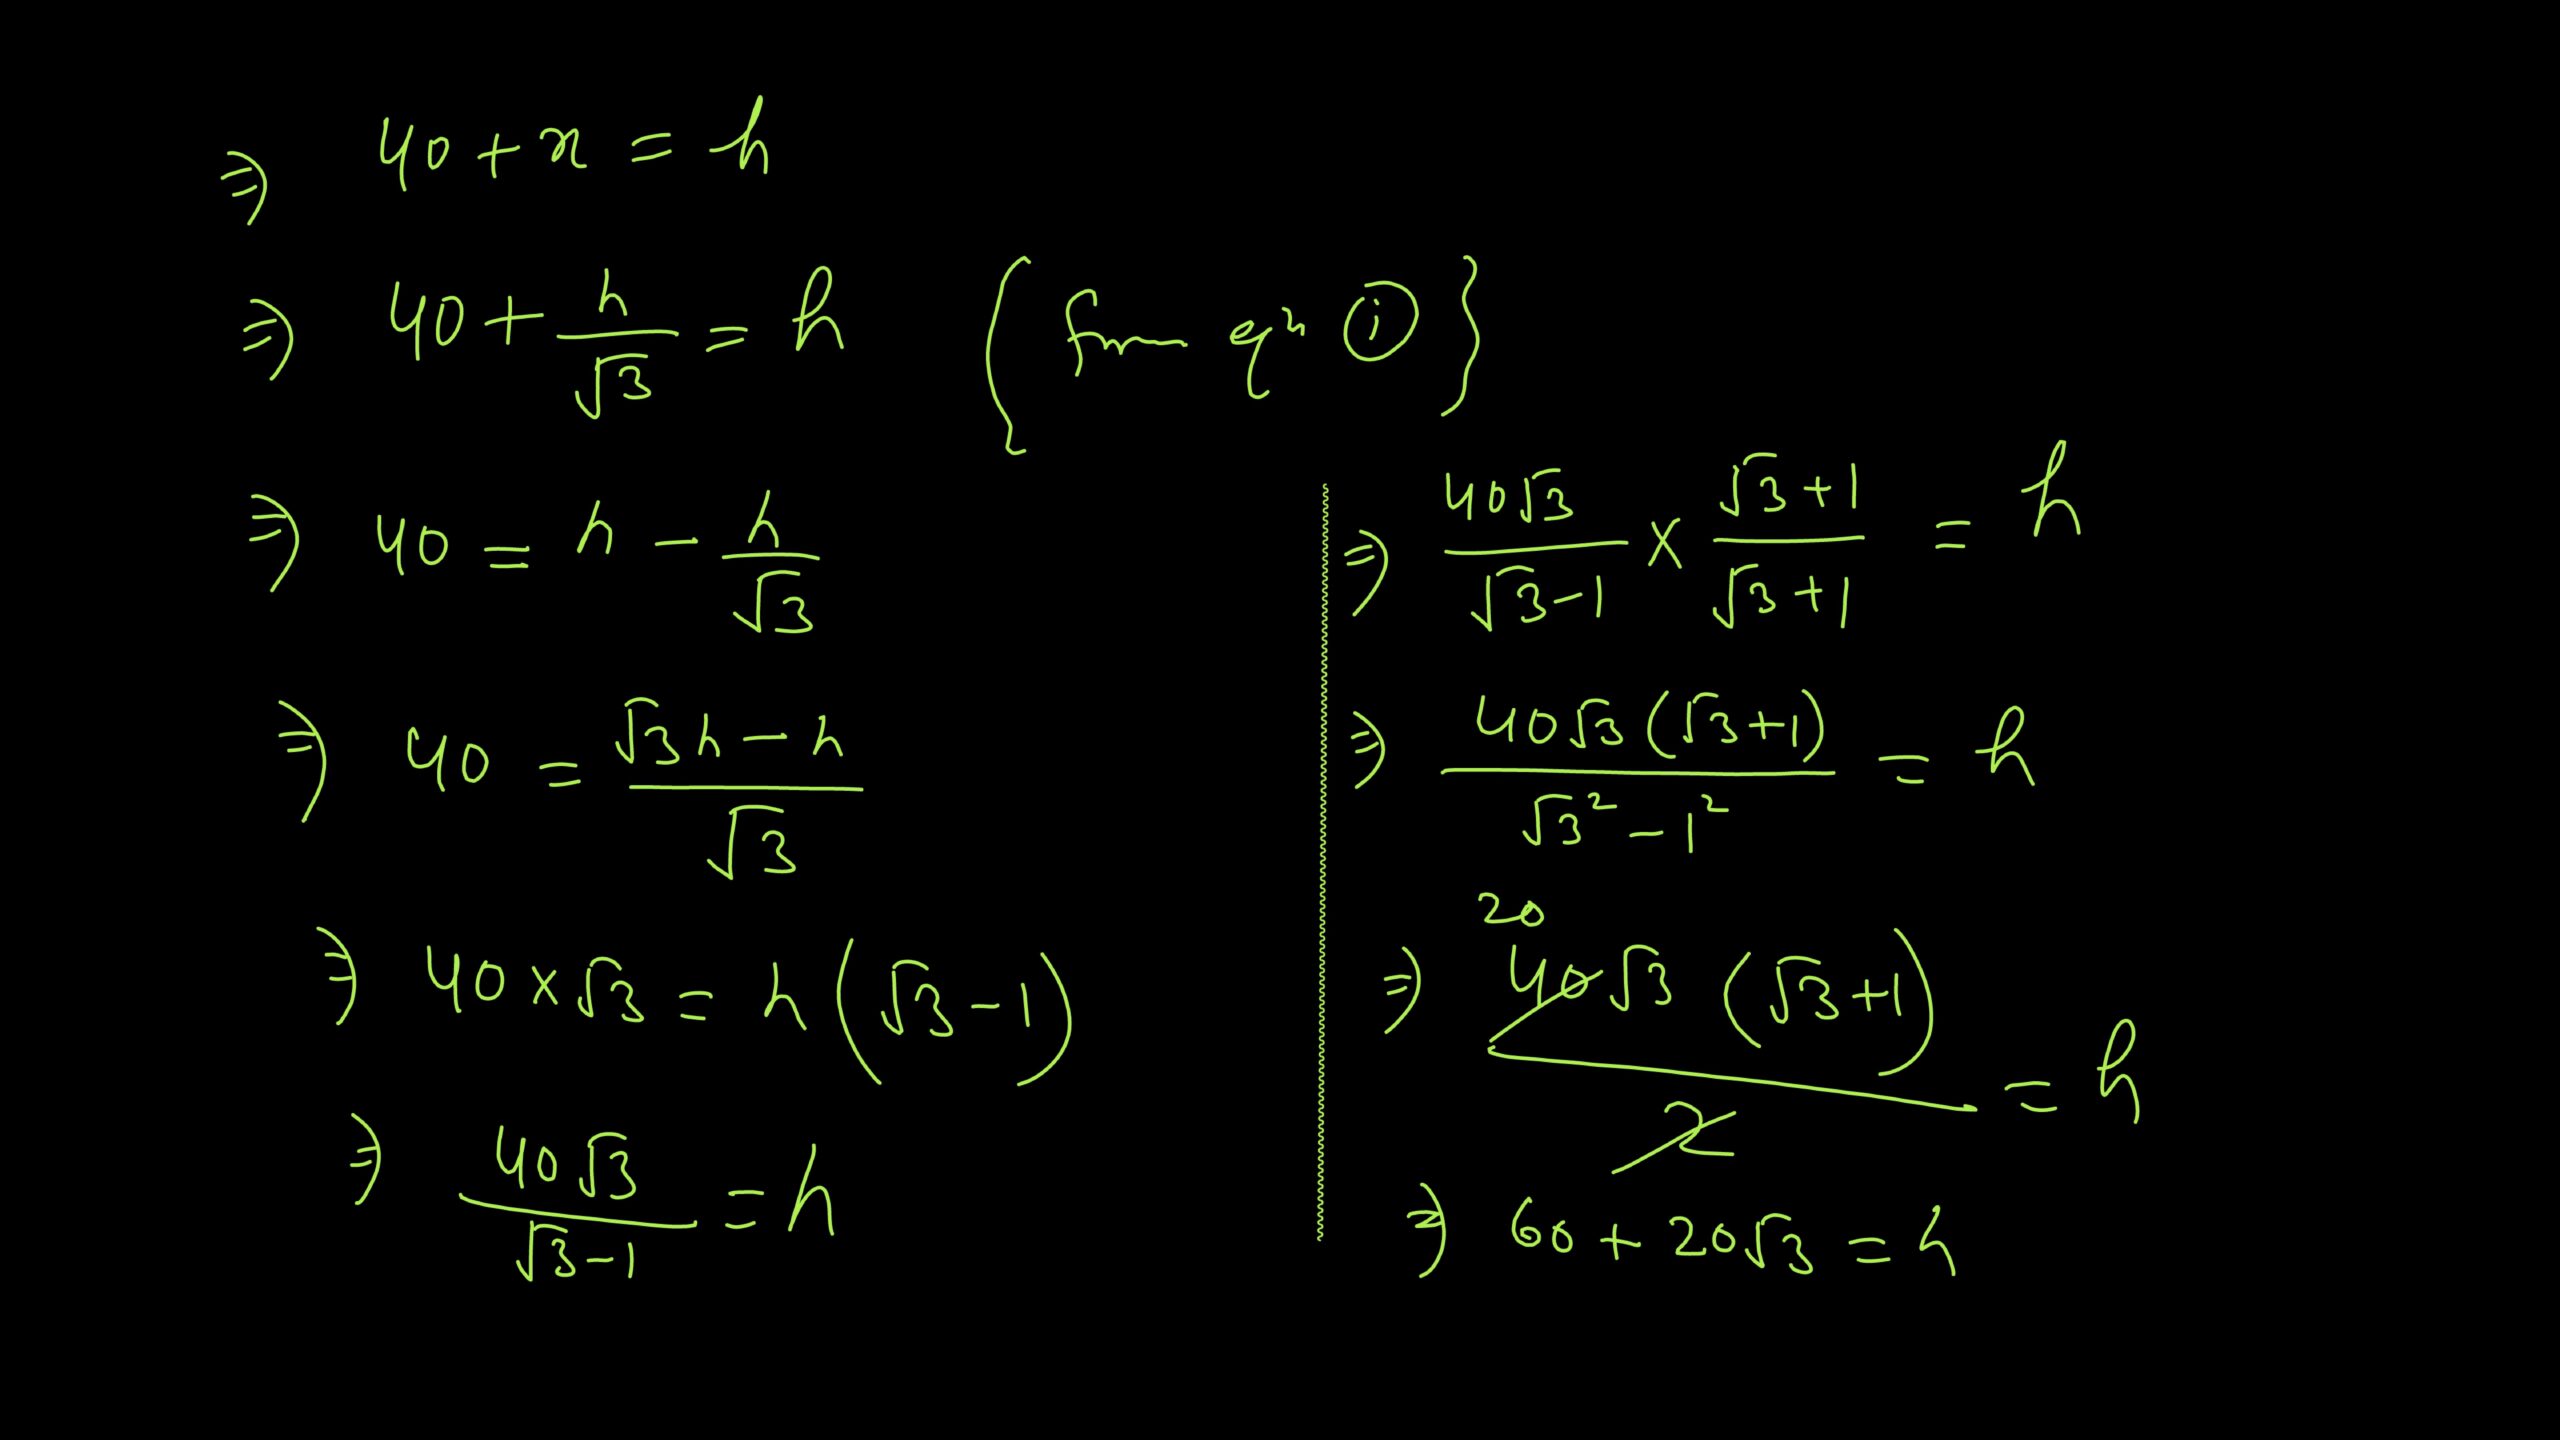 ⇒ 40 + x = h
⇒ 40 + h/√3 = h {from eqⁿ ⓘ}
⇒ 40 = h - h/√3
⇒ 40 = (√3h - h)/√3
⇒ 40 × √3 = h(√3 - 1)
⇒ 40√3/(√3-1) = h
⇒ 40√3/(√3-1) × (√3+1)/(√3+1) = h
⇒ 40√3(√3+1)/(√3² - 1²) = h
20
⇒ 40√3(√3+1)/2 = h
⇒ 60 + 20√3 = h